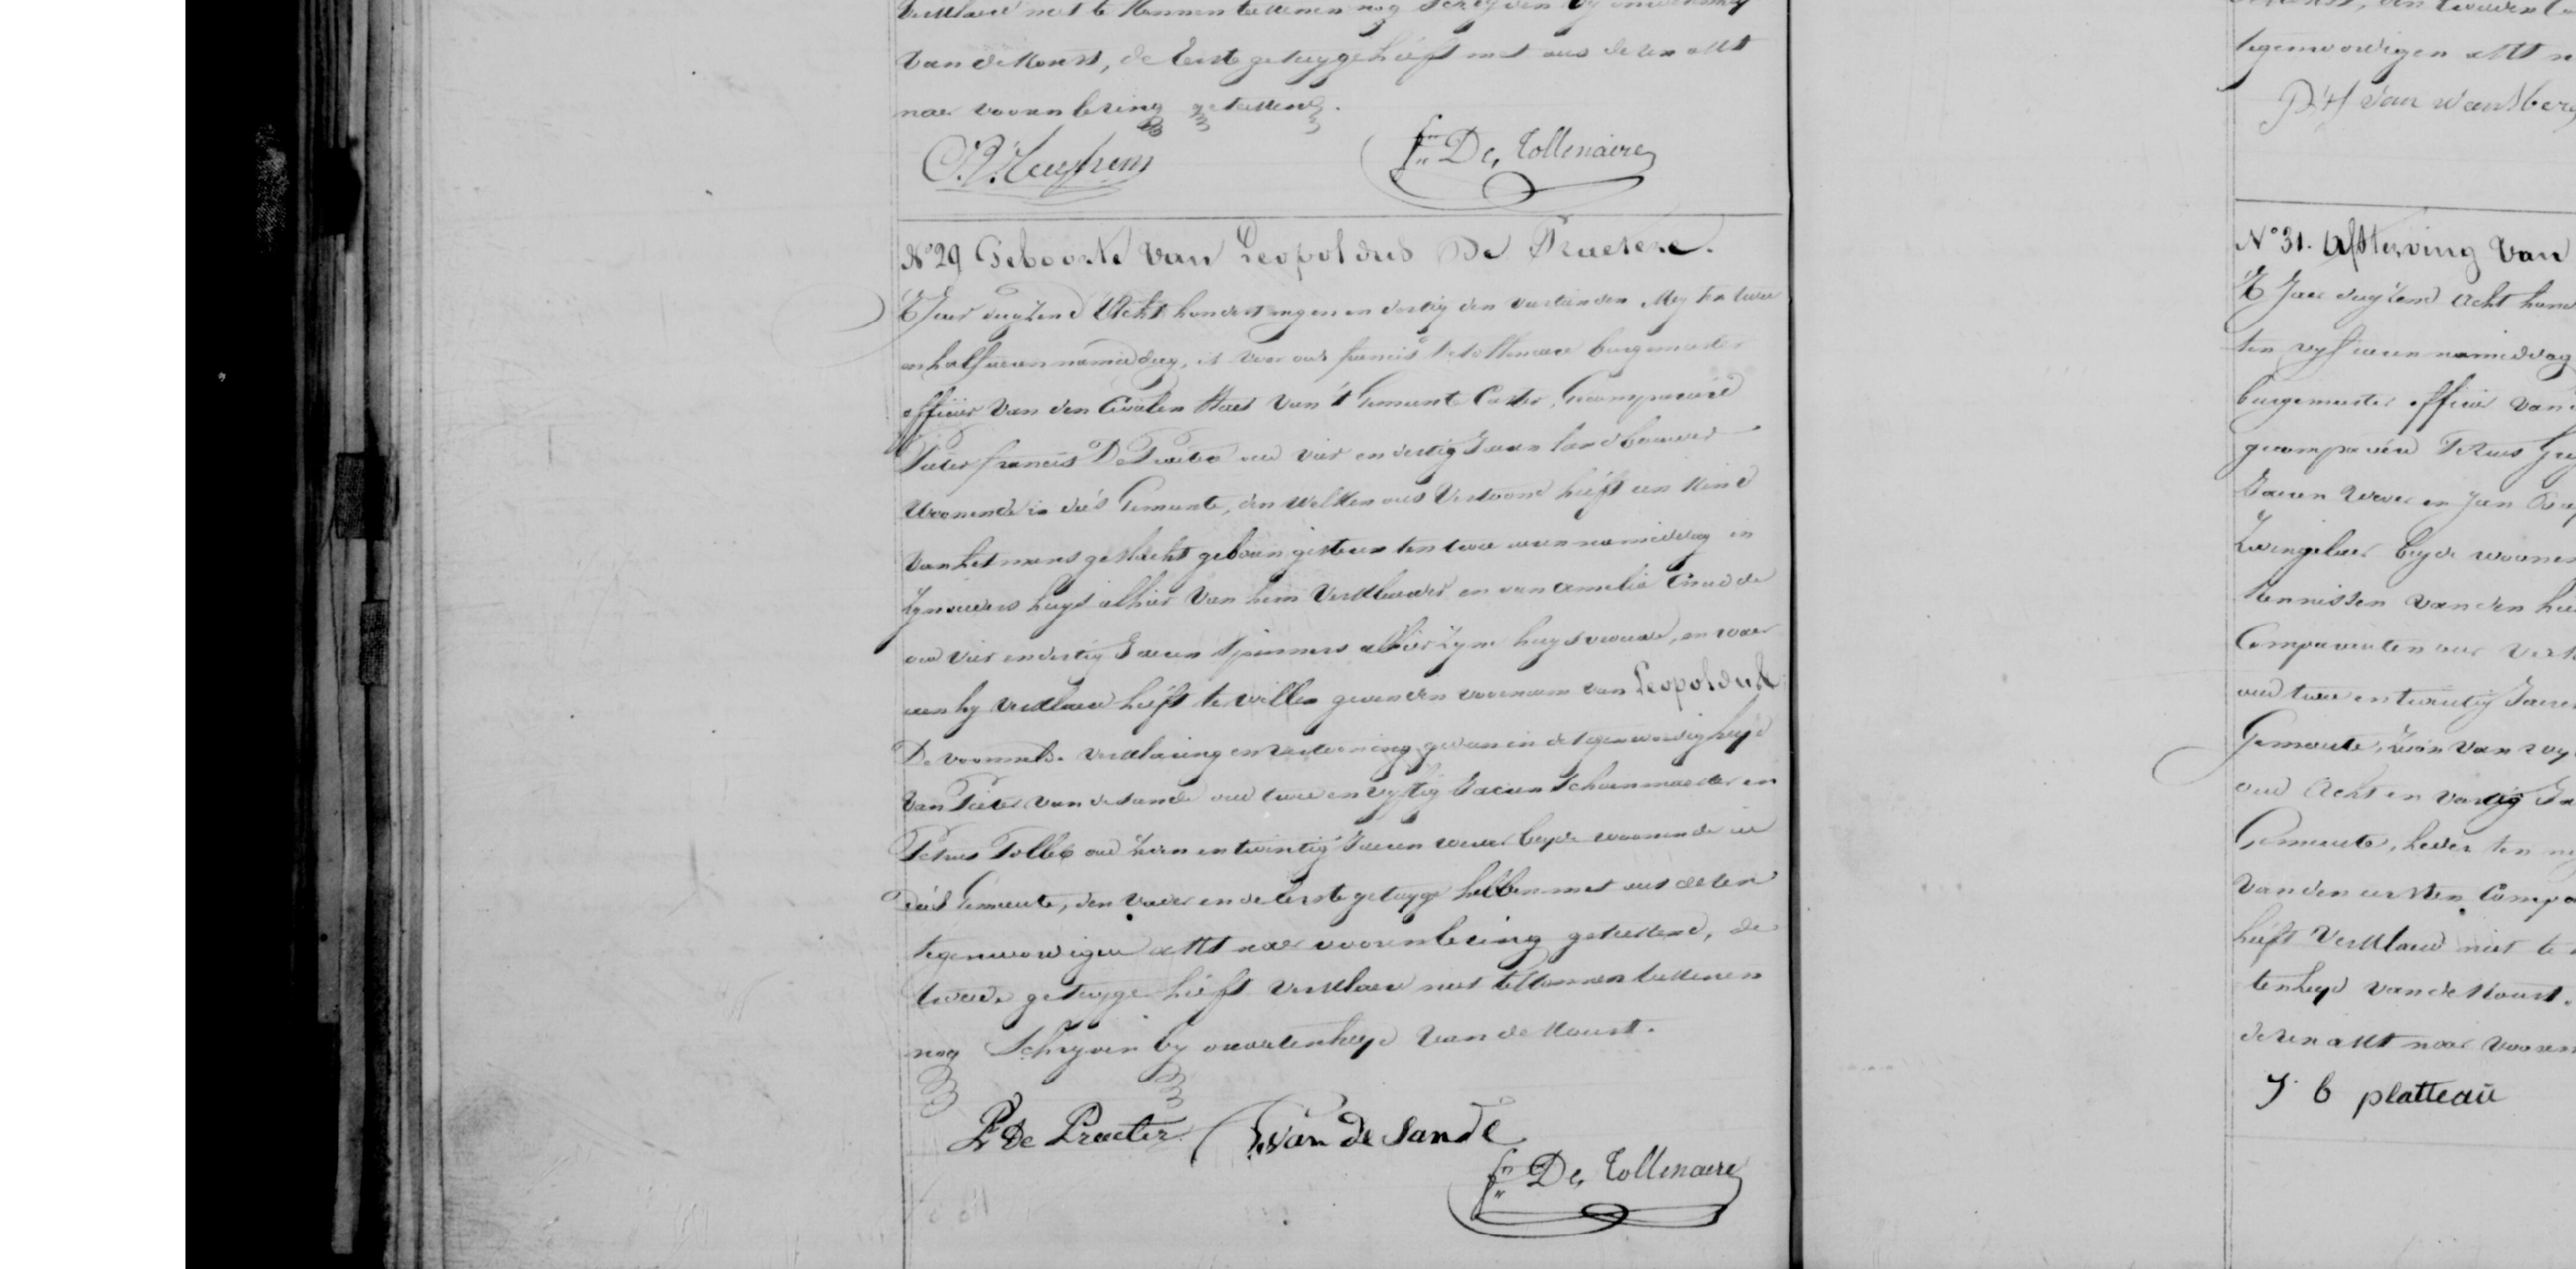 Verklaerd niet te konnen teekenen nog schryven by
van de konst, de Eerste getuyge heeft met ons desen akt
naer voorenlezing geteekend.
fr. De Tollenaire
N° 29 Geboorte van Leopoldus De Praetere.
'T Jaer duyzend Acht honderd negen en dertig den Mey ten twee
en half uren namiddag, is voor ons francis De tollenaere burgemeester
officier van den Civielen staet van 't Gemeente Caster, Gecompareerd
Pieter francis De Praeter oud vier en dertig Jaeren landbouwer
Woonende in dees Gemeente, den welken ons Vertoond heeft een Kind
van het mans geslacht geboren gisteren ten twee uren namiddag in
zynen huys alhier van hem Verklaerder en van amelia
oud vier en dertig Jaeren spinnerse alhier zyne huysvrouwe, en waer
aen hy verklaerd heeft te willen geven den voornaem van Leopoldus
De voormelde verklaering en vertooning gedaen in de tegenwoordigheyd
Van Pieter van de sande oud twee en vyftig Jaeren Schoenmaeker en
Petrus oud zeven en twintig Jaeren wever beyde woonende in
dees Gemeente, den vader en de eerste getuyge hebben met ons desen
tegenwoordigen akt naer voorenlezing geteekend, de
tweede getuyge heeft verklaerd niet te konnen teekenen
nog Schryven by onwetenheyd van de konst.
P. De Praeter van de sande
fr. De Tollenaere
tegenwoordigen akt
P. H van wantberg
N° 31. Afsterving Van
'T Jaer duyzend Acht hond
ten vyf uren namiddag
burgemeester officier van
gecompareerd Petrus
Jaeren Wever en Jan
beyde woonen
kennissen van den
Comparanten ons verk
oud twee en twintig Jaeren
Gemeente, zoon van
oud Acht en vertig
Gemeente, heden ten
van den eersten Compa
heeft Verklaerd niet te
tenheyd van de konst.
desen akt naer vooren
J B platteau